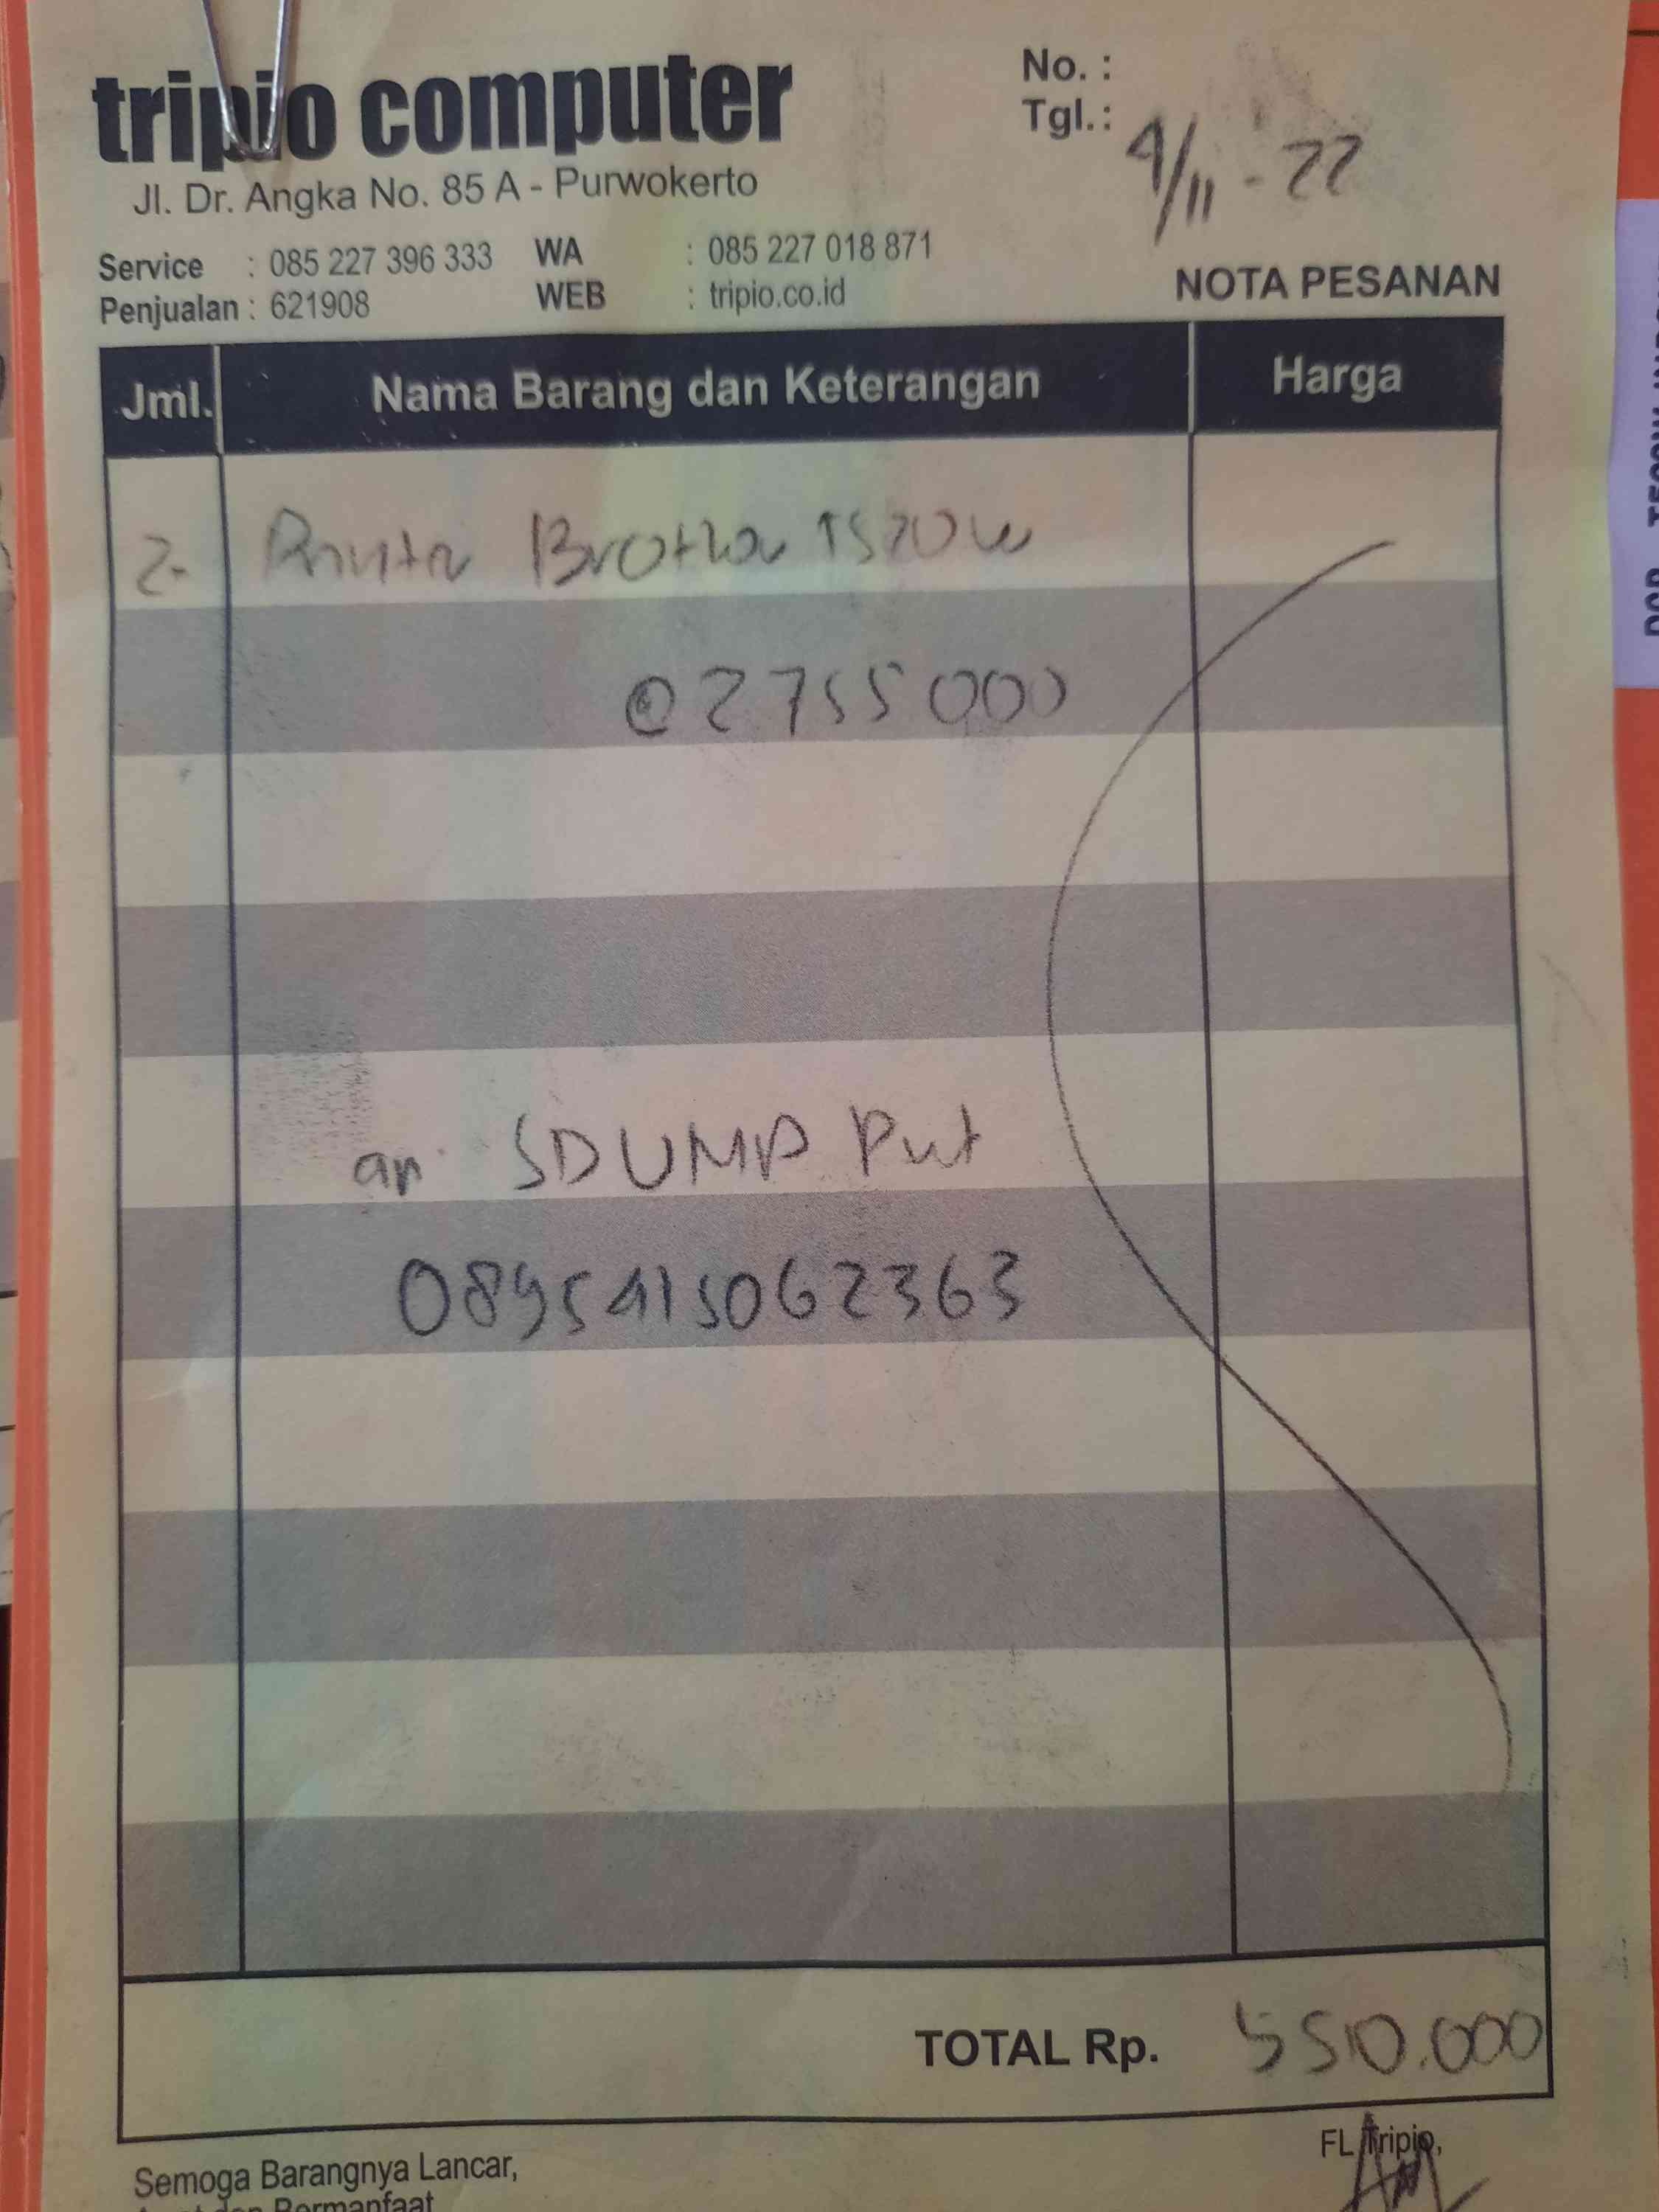 tripio computer
Jl. Dr. Angka No. 85 A - Purwokerto
No. :
Tgl.: 4/11 - 22
Service : 085 227 396 333 WA : 085 227 018 871
Penjualan : 621908 WEB : tripio.co.id
NOTA PESANAN
Jml. Nama Barang dan Keterangan Harga
2- Printer Brother T520w
@ 2755000
an. SDUMP Pwt
0895415062363
TOTAL Rp. 5510.000
FL Tripio,
Semoga Barangnya Lancar,
Bermanfaat